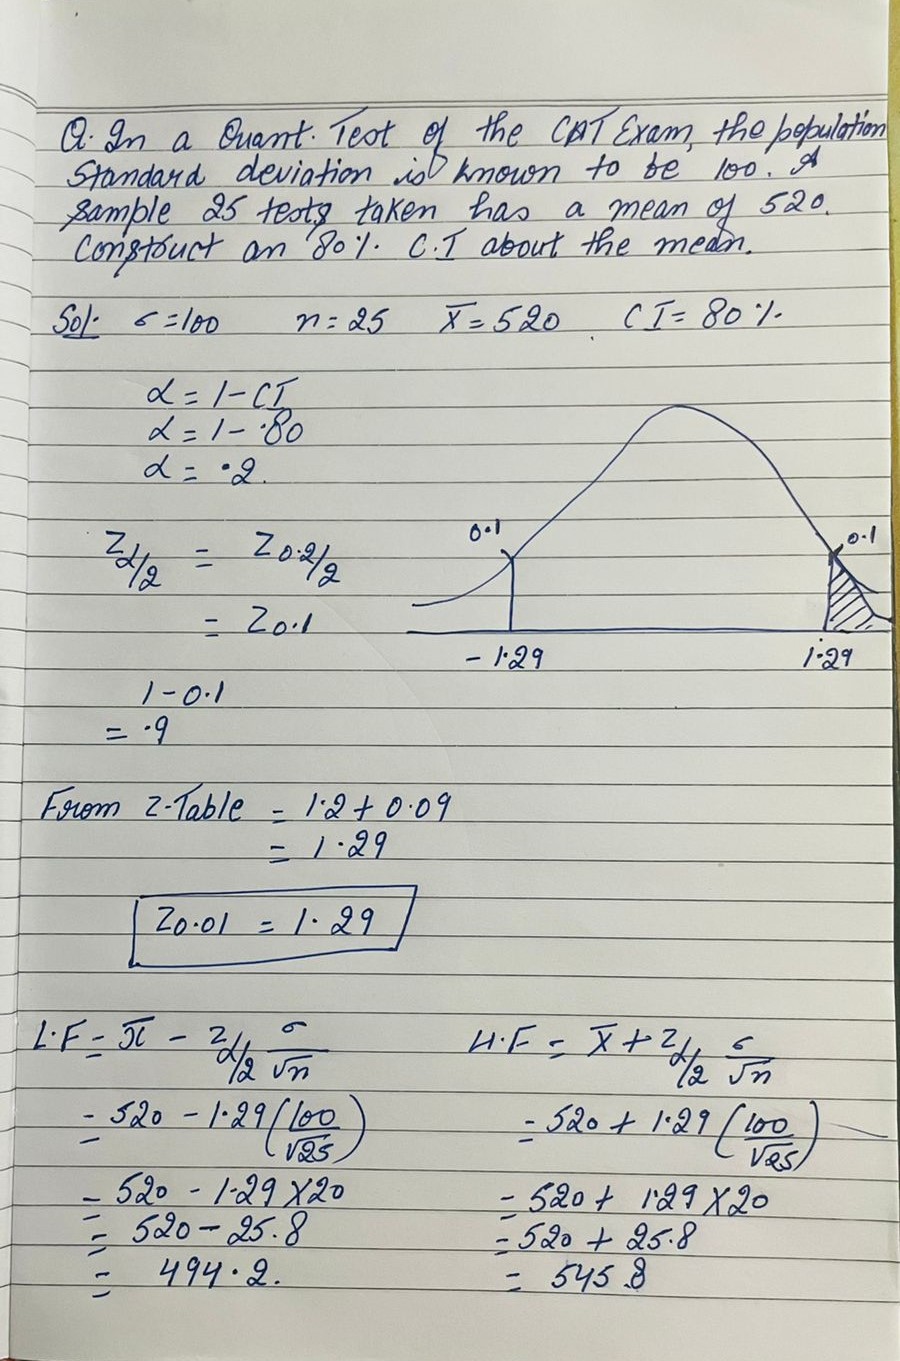 Q. In a Quant. Test of the CAT Exam, the population
Standard deviation is known to be 100. A
sample 25 tests taken has a mean of 520.
Construct an 80%. C.I about the mean.
Sol: σ=100 n=25 X̅=520 CI=80%.
α = 1-CI
α = 1-.80
α = .2.
Zα/2 = Z0.2/2
= Z0.1
0.1 0.1
-1.29 1.29
1-0.1
= .9
From Z-Table = 1.2+0.09
= 1.29
Z0.01 = 1.29
L.F = x̅ - Zα/2 σ/√n
= 520 - 1.29(100/√25)
= 520 - 1.29 X20
= 520 - 25.8
= 494.2.
H.F = X̅ + Zα/2 σ/√n
= 520 + 1.29(100/√25)
= 520 + 1.29 X20
= 520 + 25.8
= 545.8